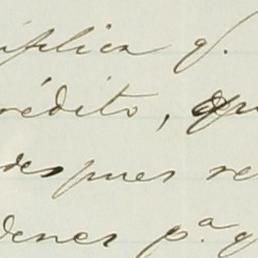 uplica q.
rédito, qu
despues re
denes p.ª q